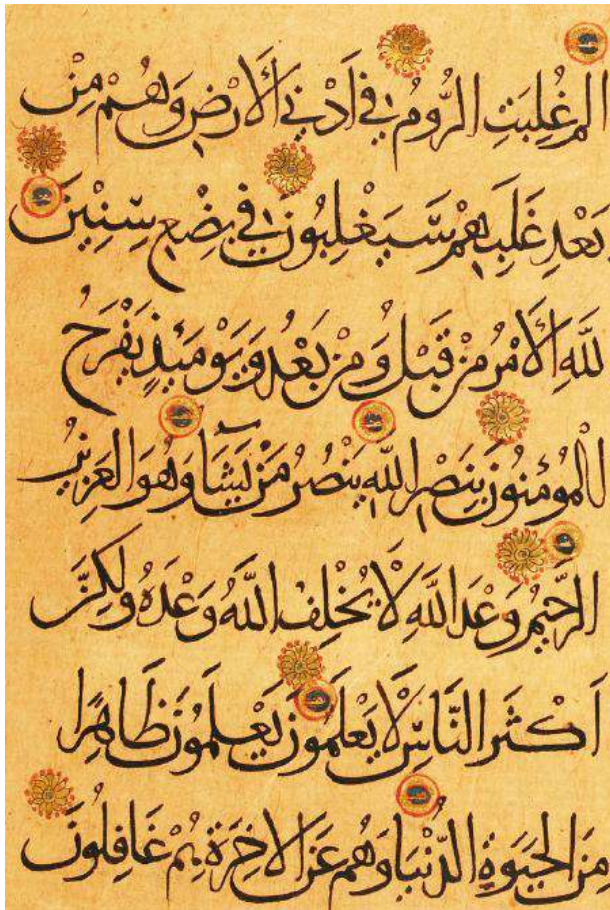 الم غُلِبَتِ الرُّومُ فِي اَدْنَي الْاَرْضِ وَهُمْ مِنْ
بَعْدِ غَلَبِهِمْ سَيَغْلِبُونَ فِي بِضْعِ سِنِينَ
لِلّٰهِ الْاَمْرُ مِنْ قَبْلُ وَمِنْ بَعْدُ وَيَوْمَئِذٍ يَفْرَحُ
الْمُؤْمِنُونَ بِنَصْرِ اللّٰهِ يَنْصُرُ مَنْ يَشَآ وَهُوَ الْعَزِيزُ
الرَّحِيمُ وَعْدَ اللَّهِ لَا يُخْلِفُ اللَّهُ وَعْدَهُ وَلَكِنَّ
اَكْثَرَ النَّاسِ لَا يَعْلَمُونَ يَعْلَمُونَ ظَاهِرًا
مِنَ الْحَيَوةِ الدُّنْيَا وَهُمْ عَنِ الْاخِرَةِ هُمْ غَافِلُونَ